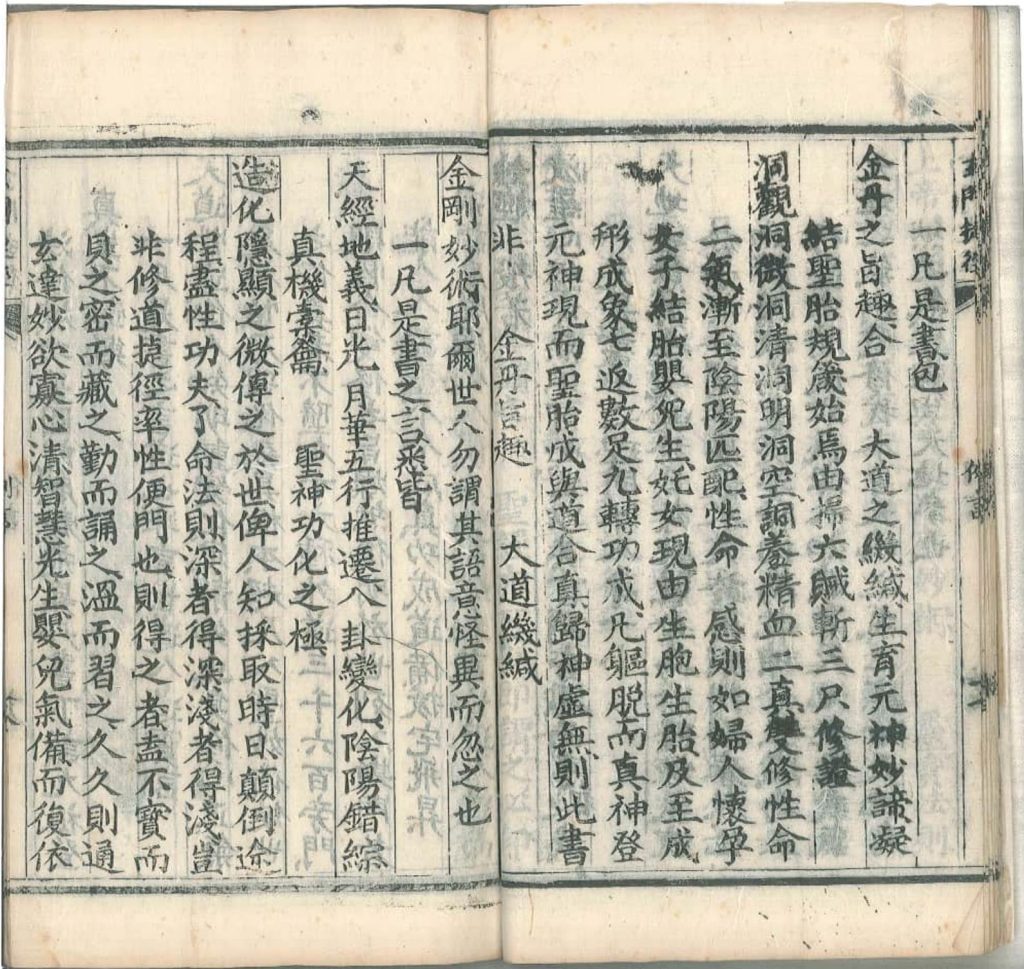 一凡是書包
金丹之旨趣合　大道之機緘生育元神妙諦凝
結聖胎規箴始焉由掃六賊斬三尸修證
洞觀洞微洞清洞明洞空洞養精血二真雙修性命
二氣漸至陰陽匹配性命　感則如婦人懷孕
女子結胎嬰兒生奼女現由生胞生胎及至成
形成象七返數足九轉功成凡軀脫而真神登
元神現而聖胎成與道合真歸神虛無則此書
非　　金丹旨趣　　大道機緘
金剛妙術耶爾世人勿謂其語意怪異而忽之也
一凡是書之言丞皆
天經地義日光月華五行推遷八卦變化陰陽錯綜
真機橐籥　　聖神功化之極
造化隱顯之微傳之於世俾人知採取時日顛倒途
程盡性功夫了命法則深者得深淺者得淺豈
非修道捷徑率性便門也則得之者盍不寶而
貝之密而藏之勤而誦之溫而習之久久則通
玄達妙欲寡心清智慧光生嬰兒氣備而復依